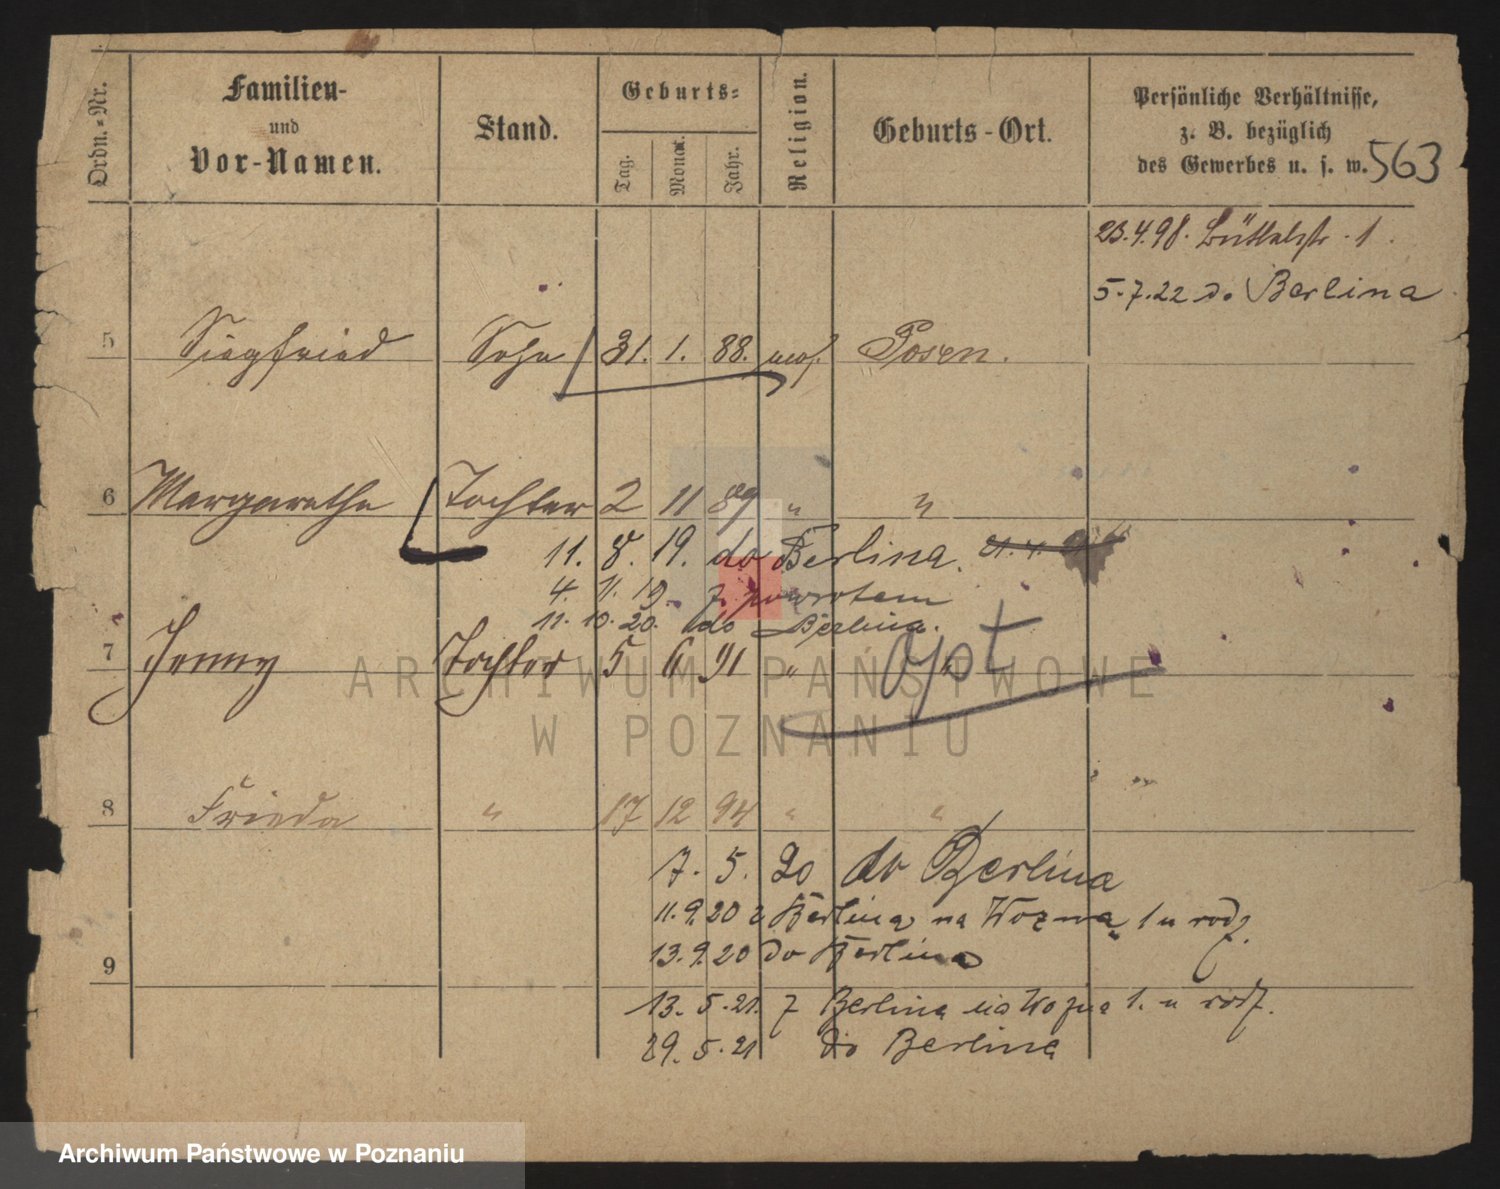 Ordn.-Nr.
Familien-
und
Vor-Namen.
Stand.
Geburts-
Tag.
Monat.
Jahr.
Religion.
Geburts-Ort.
Persönliche Verhältnisse,
z. B. bezüglich
des Gewerbes u. s. w.
563
23.4.98. Büttelstr. 1.
5.7.22 do Berlina
5 Siegfried Sohn 31. 1. 88. mos. Posen.
6 Margarethe Tochter 2 11 89 " "
11. 8. 19. do Berlina.
4. 11. 19 z powrotem
11. 10. 20. do Berlina.
7 Jenny Tochter 5 6 91 " "
opt
ARCHIWUM PAŃSTWOWE
W POZNANIU
8 Frieda " 17 12 94 " "
7. 5. 20 do Berlina
11.9.20 z Berlina na Wozna 1 u rodz.
13.9.20 do Berlina
9
13. 5. 21. z Berlina na Wozna 1. u rodz.
29. 5. 21 do Berlina
Archiwum Państwowe w Poznaniu